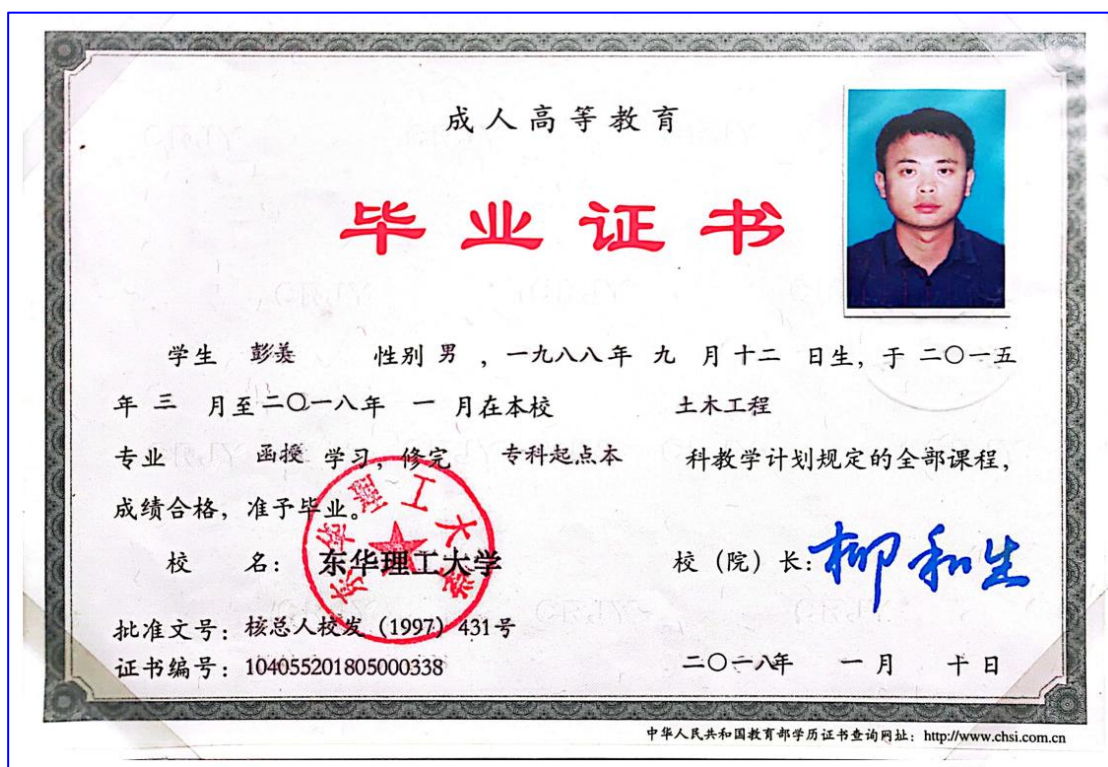 成人高等教育
毕业证书
学生 彭羕 性别 男 ，一九八八年 九 月十二 日生，于 二〇一五
年 三 月至二〇一八年 一 月在本校 土木工程
专业 函授 学习，修完 专科起点本 科教学计划规定的全部课程，
成绩合格，准予毕业。
东华理工大学
校 名：东华理工大学 校（院）长：柳和生
批准文号：核总人校发（1997）431号
证书编号：104055201805000338 二〇一八年 一月 十日
中华人民共和国教育部学历证书查询网址：http://www.chsi.com.cn